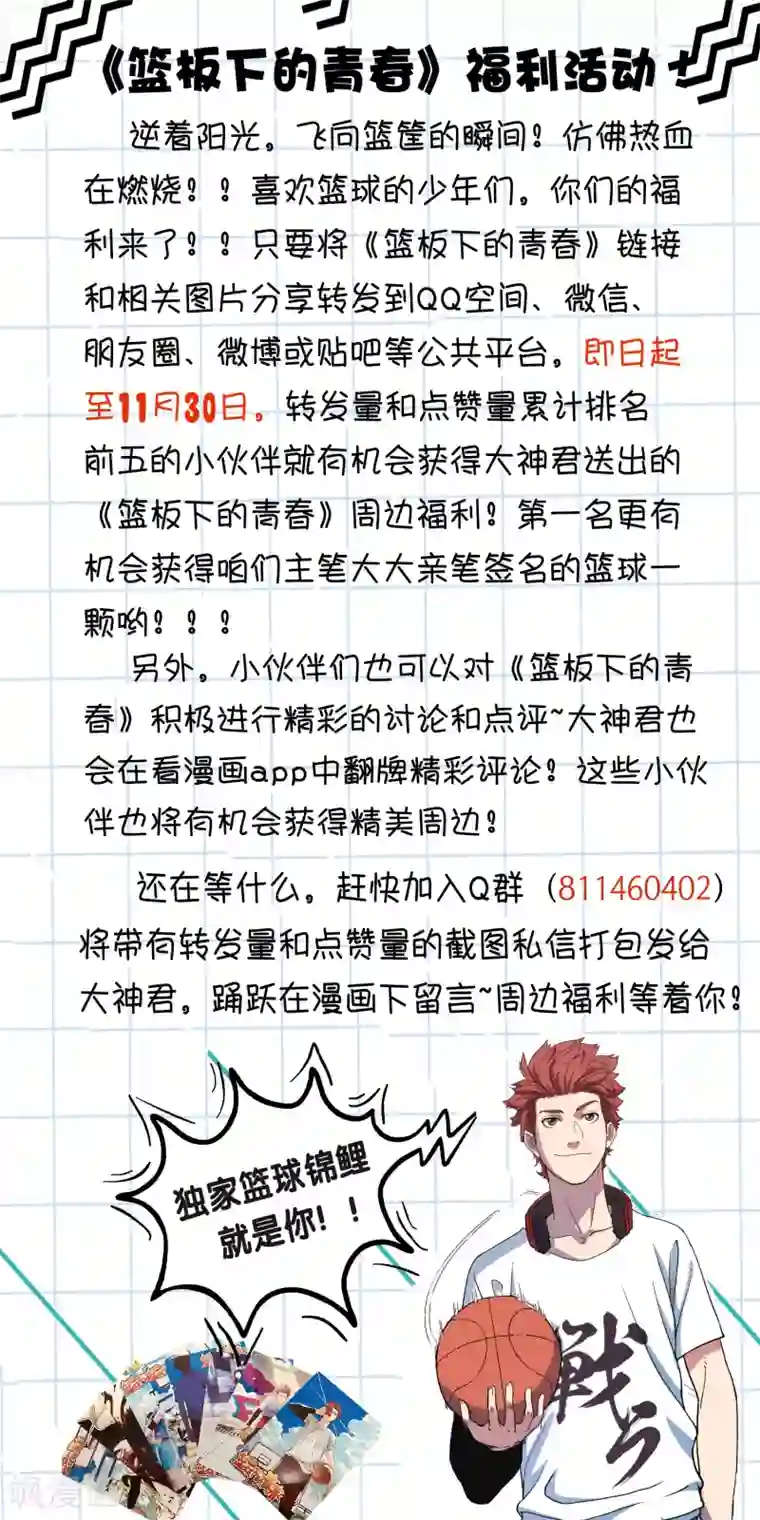 《篮板下的青春》福利活动
逆着阳光。飞向篮筐的瞬间！仿佛热血
在燃烧！！喜欢篮球的少年们。你们的福
利来了！！只要将《篮板下的青春》链接
和相关图片分享转发到QQ空间、微信、
朋友圈、微博或贴吧等公共平台。即日起
至11月30日。转发量和点赞量累计排名
前五的小伙伴就有机会获得大神君送出的
《篮板下的青春》周边福利！第一名更有
机会获得咱们主笔大大亲笔签名的篮球一
颗哟！！！
另外。小伙伴们也可以对《篮板下的青
春》积极进行精彩的讨论和点评~大神君也
会在看漫画app中翻牌精彩评论！这些小伙
伴也将有机会获得精美周边！
还在等什么。赶快加入Q群（811460402）
将带有转发量和点赞量的截图私信打包发给
大神君。踊跃在漫画下留言~周边福利等着你！
独家篮球锦鲤
就是你！！
戦
う